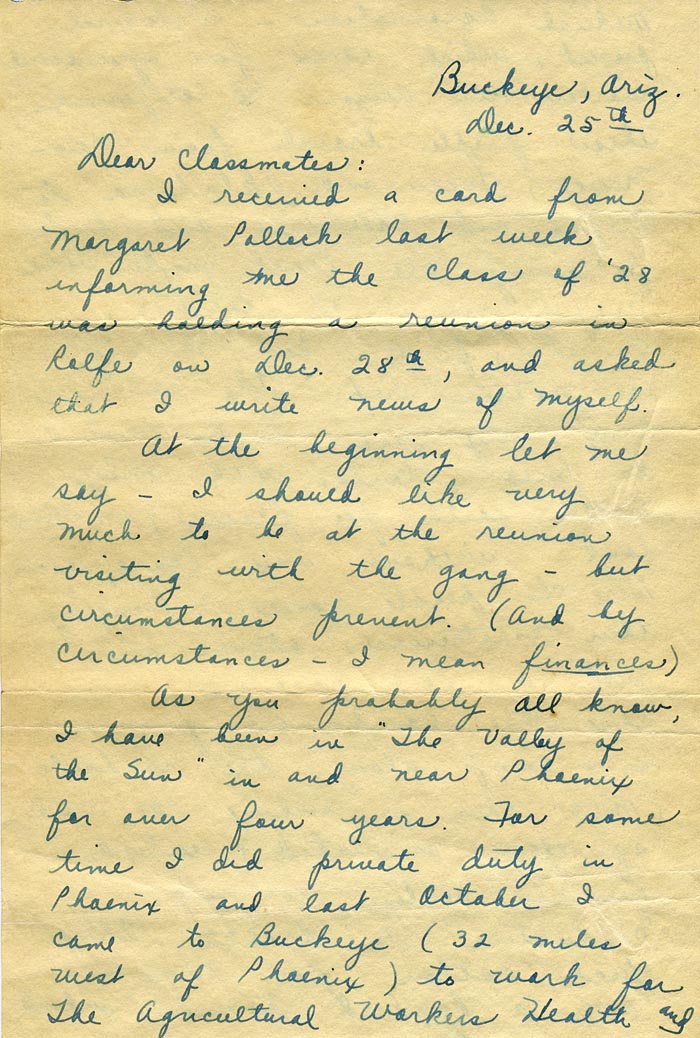 Buckeye, Ariz.
Dec. 25th
Dear Classmates:
I received a card from
Margaret Pollock last week
informing me the class of '28
was holding a reunion in
Rolfe on Dec. 28th, and asked
that I write news of myself.
At the beginning let me
say - I should like very
much to be at the reunion
visiting with the gang - but
circumstances prevent. (And by
circumstances - I mean finances)
As you probably all know,
I have been in "The Valley of
the Sun" in and near Phoenix
for over four years. For some
time I did private duty in
Phoenix and last October I
came to Buckeye (32 miles
west of Phoenix) to work for
The Agricultural Workers Health and